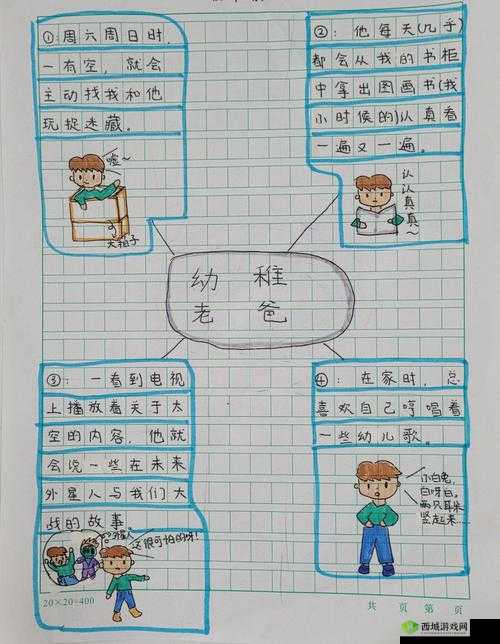 ①：周六周日时，
一有空，就会
主动找我和他
玩捉迷藏。
嘘~
大箱子
②：他每天(几乎)
都会从我的书柜
中拿出图画书(我
小时候的)认真看
一遍又一遍。
认认真真~
幼稚
老爸
③：一看到电视
上播放着关于太
空的内容，他就
会说一些在未来
外星人与我们大
战的故事。
这很可怕的呀！
④：在家时，总
喜欢自己哼唱着
一些幼儿歌。
小白兔，
白呀白。
两只耳朵
竖起来……
20×20=400
共 页 第 页
西城游戏网